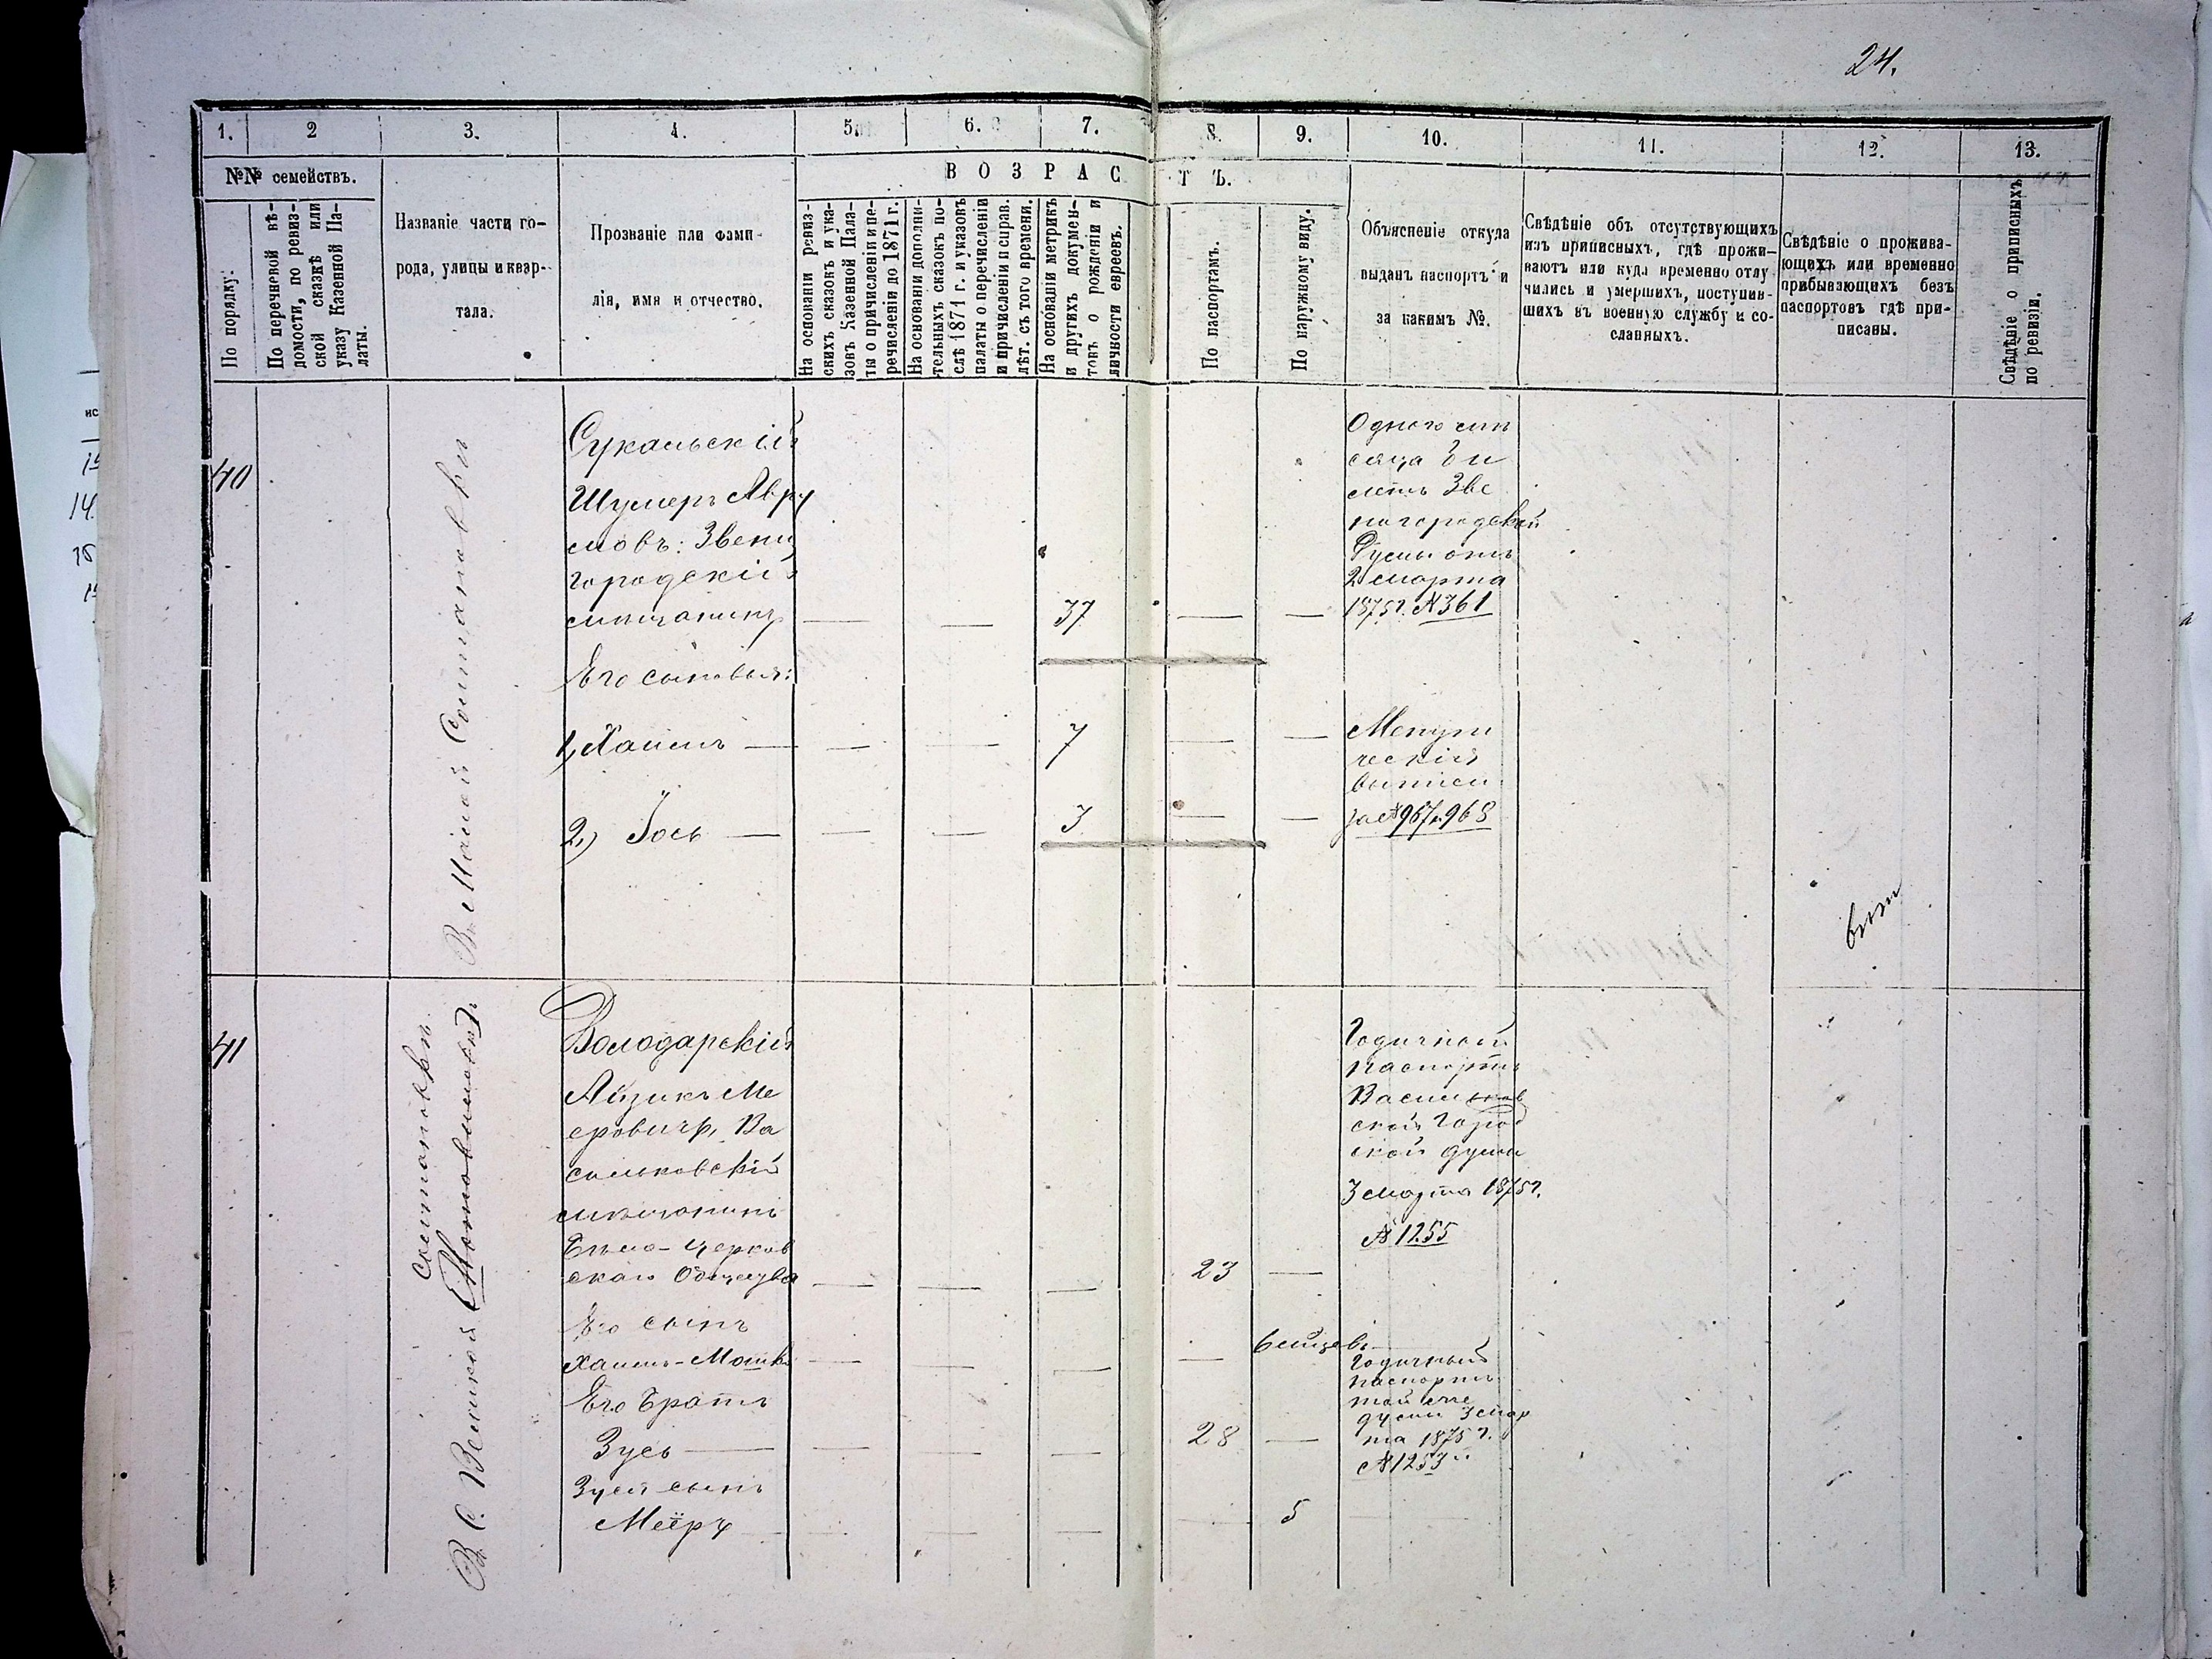 24.
1. 2 3. 4. 5. 6. 7. 8. 9. 10. 11. 12. 13.
№№ семействъ.
ВОЗРАСТЪ.
По порядку.
По перечневой вѣ-
домости, по ревиз-
ской сказкѣ или
указу Казенной Па-
латы.
Названіе части го-
рода, улицы и квар-
тала.
Прозваніе или фами-
лія, имя и отчество.
На основаніи ревиз-
скихъ сказокъ и ука-
зовъ Казенной Пала-
ты о причисленіи и пе-
речисленіи до 1871 г.
На основаніи дополни-
тельныхъ сказокъ по-
слѣ 1871 г. и указовъ
палаты о перечисленіи
и причисленіи и справ.
лѣт. съ того времени.
На основаніи метрикъ
и другихъ докумен-
товъ о рожденіи и
личности евреевъ.
По паспортамъ.
По наружному виду.
Объясненіе откуда
выданъ паспортъ и
за какимъ №.
Свѣдѣніе объ отсутствующихъ
изъ приписныхъ, гдѣ прожи-
ваютъ или куда временно отлу
чились и умершихъ, поступив-
шихъ въ военную службу и со-
сланныхъ.
Свѣдѣніе о прожива-
ющихъ или временно
прибывающихъ безъ
паспортовъ гдѣ при-
писаны.
Свѣдѣніе о приписныхъ
по ревизіи.
40
Въ Малой Солтановки
Сукальскій
Шулеръ Авру
мовъ: Звени
городскій
мѣщанинъ
37
Его сыновья:
1, Хаимъ
7
2,) Іось
3
Одного мѣ
сяца би
летъ Зве
нигородской
Думы отъ
2 марта
1875 г. № 361
Метри
ческія
выписи
за № 967 и 968
41
В. С. Великой
Солтановкѣ
Володарскій
Айзикъ Ме
еровичъ, Ва
сильковскій
мѣщанинъ
Бѣло-Церков
скаго Общества
23
Его сынъ
Хаимъ-Мошко
6 мѣсяцевъ
Его братъ
Зусь
28
Зуся сынъ
Меёръ
5
Годичный
паспортъ
Васильков
ской Город
ской думы
3 марта 1875 г.
№ 1255
Годичный
паспортъ
той же
думы 3 мар
та 1875 г.
№ 1253